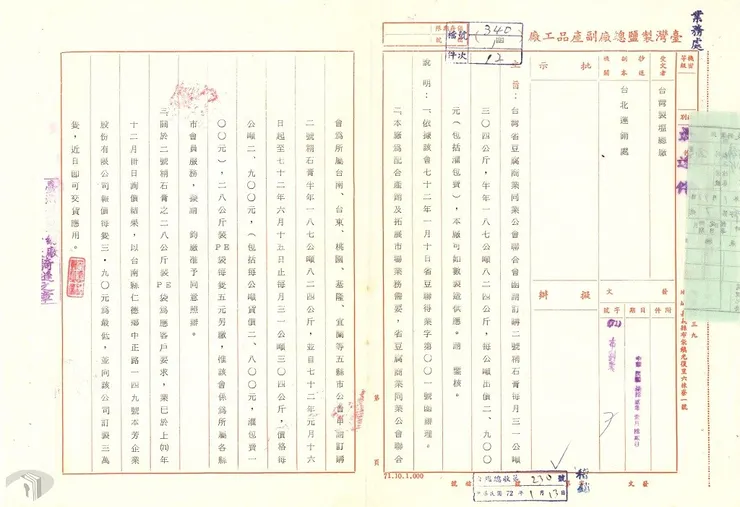 業務處
臺灣製鹽總廠副產品工廠
340
1
12
受文者
台灣製鹽總廠
副本
台北運銷處
批示
擬辦
發文
字號
日期
附件
主旨:台灣省豆腐商業同業公會聯合會函請訂購二號精石膏每月三一公噸
三〇四公斤,半年一八七公噸八二四公斤,每公噸出價二、九〇〇
元(包括灌包費),本廠可如數製造供應。請 鑒核。
說明:一、依據該會七十二年一月十日省豆聯得業字第〇〇一號函辦理。
二、本廠為配合產銷及拓展市場業務需要,省豆腐商業同業公會聯合
會為所屬台南、台東、桃園、基隆、宜蘭等五縣市公會申請訂購
二號精石膏半年一八七公噸八二四公斤,並自七十二年元月十六
日起至七十二年六月十五日止每月三一公噸三〇四公斤,價格每
公噸二、九〇〇元,(包括每公噸貨價二、八〇〇元,灌包費一
〇〇元),二八公斤裝PE袋每隻五元另繳,惟該會係為所屬各縣
市會員服務,擬請 鈞廠准予同意照辦。
三、關於二號精石膏之二八公斤裝PE袋為應客戶要求,業已於上(71)年
十二月卅日詢價結果,以台南縣仁德鄉中正路一四九號本芳企業
股份有限公司報價每隻三·九〇元為最低,並向該公司訂製三萬
隻,近日即可交貨應用。
第 頁
71.10.1,000
發文 第 號
收總
230
號
中華民國72年1月13日